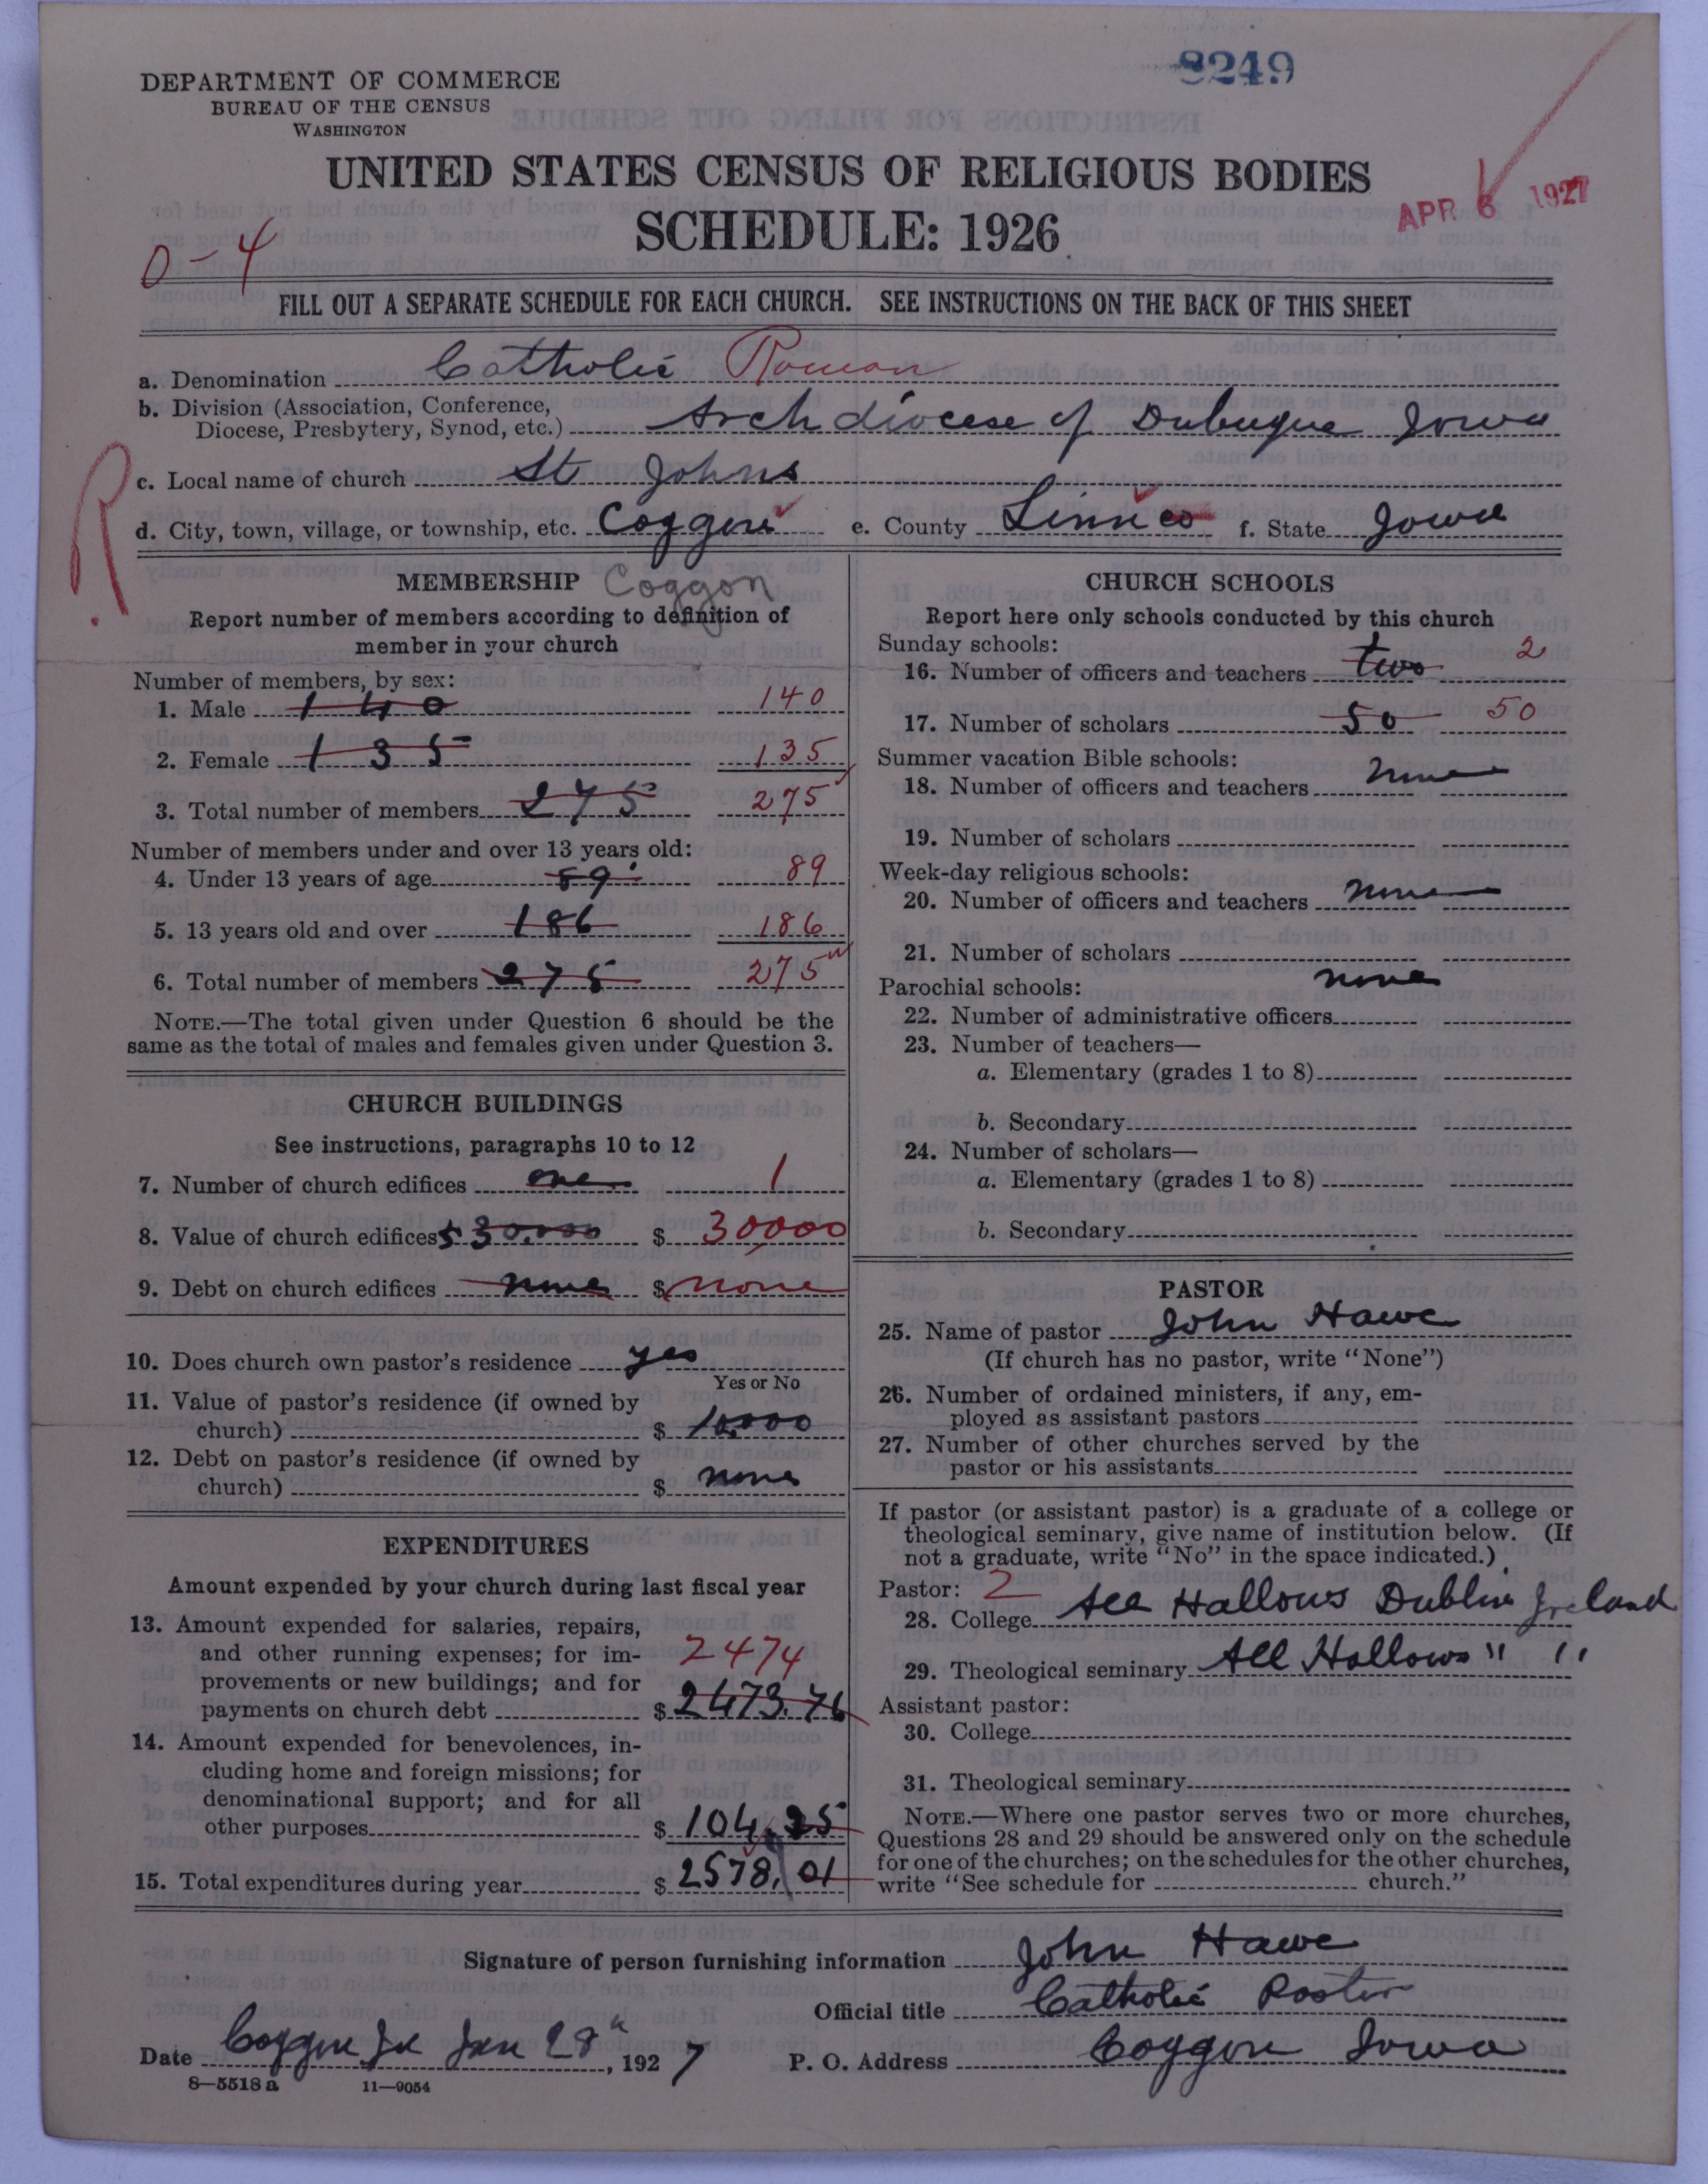 8249
DEPARTMENT OF COMMERCE
BUREAU OF THE CENSUS
WASHINGTON
UNITED STATES CENSUS OF RELIGIOUS BODIES
SCHEDULE: 1926
APR 6 1927
0-4
FILL OUT A SEPARATE SCHEDULE FOR EACH CHURCH. SEE INSTRUCTIONS ON THE BACK OF THIS SHEET
a. Denomination Catholic Roman
b. Division (Association, Conference,
Diocese, Presbytery, Synod, etc.) Archdiocese of Dubuque Iowa
R
c. Local name of church St Johns
d. City, town, village, or township, etc. Coggon e. County Linn co f. State Iowa
MEMBERSHIP Coggon
Report number of members according to definition of
member in your church
Number of members, by sex:
1. Male 140 140
2. Female 135 135
3. Total number of members 275 275
Number of members under and over 13 years old:
4. Under 13 years of age 89 89
5. 13 years old and over 186 186
6. Total number of members 275 275
NOTE.—The total given under Question 6 should be the
same as the total of males and females given under Question 3.
CHURCH BUILDINGS
See instructions, paragraphs 10 to 12
7. Number of church edifices one 1
8. Value of church edifices $30,000 $ 30000
9. Debt on church edifices none $ none
10. Does church own pastor's residence yes
Yes or No
11. Value of pastor's residence (if owned by
church) $ 10,000
12. Debt on pastor's residence (if owned by
church) $ none
EXPENDITURES
Amount expended by your church during last fiscal year
13. Amount expended for salaries, repairs,
and other running expenses; for im- 2474
provements or new buildings; and for
payments on church debt $ 2473.76
14. Amount expended for benevolences, in-
cluding home and foreign missions; for
denominational support; and for all
other purposes $ 104.25
15. Total expenditures during year $ 2578.01
CHURCH SCHOOLS
Report here only schools conducted by this church
Sunday schools:
16. Number of officers and teachers two 2
17. Number of scholars 50 50
Summer vacation Bible schools:
18. Number of officers and teachers none
19. Number of scholars
Week-day religious schools:
20. Number of officers and teachers none
21. Number of scholars
Parochial schools: none
22. Number of administrative officers
23. Number of teachers—
a. Elementary (grades 1 to 8)
b. Secondary
24. Number of scholars—
a. Elementary (grades 1 to 8)
b. Secondary
PASTOR
25. Name of pastor John Hawe
(If church has no pastor, write "None")
26. Number of ordained ministers, if any, em-
ployed as assistant pastors
27. Number of other churches served by the
pastor or his assistants
If pastor (or assistant pastor) is a graduate of a college or
theological seminary, give name of institution below. (If
not a graduate, write "No" in the space indicated.)
Pastor: 2
28. College All Hallows Dublin Ireland
29. Theological seminary All Hallows " "
Assistant pastor:
30. College
31. Theological seminary
NOTE.—Where one pastor serves two or more churches,
Questions 28 and 29 should be answered only on the schedule
for one of the churches; on the schedules for the other churches,
write "See schedule for church."
Signature of person furnishing information John Hawe
Official title Catholic Pastor
Date Coggon Ia Jan 28th, 1927 P. O. Address Coggon Iowa
8—5518 a 11—9054